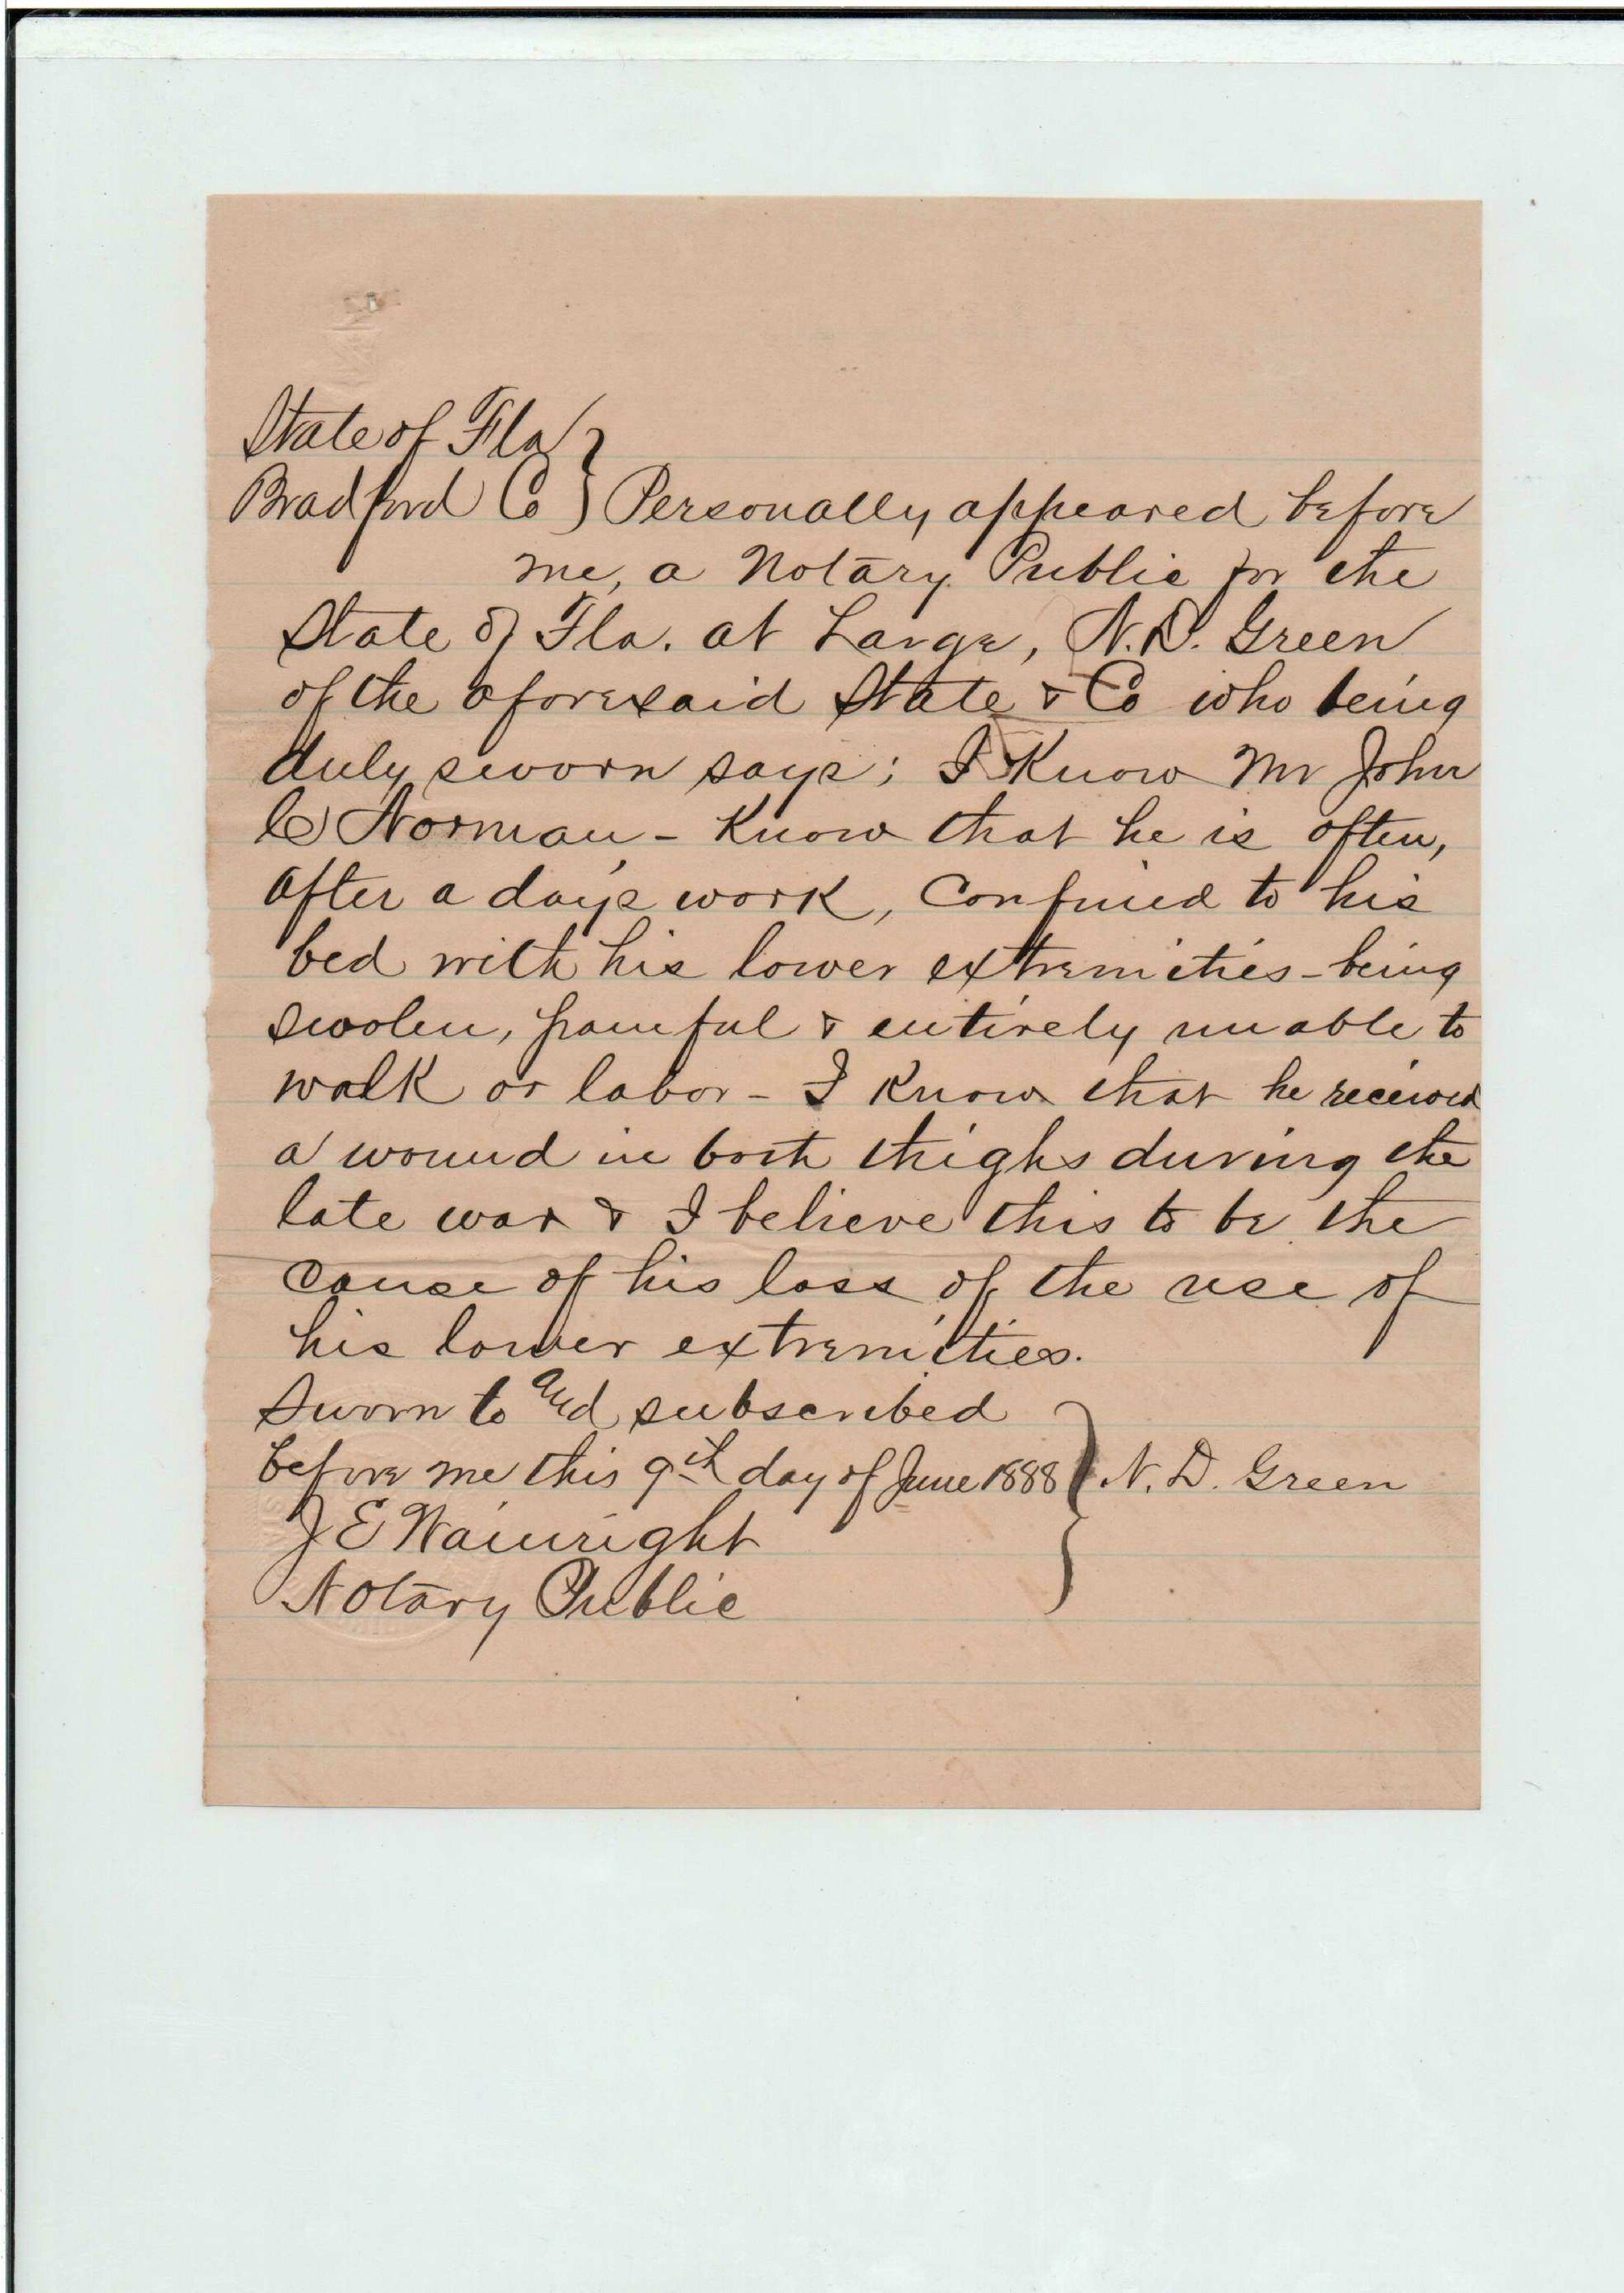 State of Fla }
Bradford Co } Personally appeared before
me, a Notary Public for the
State of Fla. at Large, N. D. Green
of the aforesaid State & Co who being
duly sworn says; I Know Mr John
C Norman - Know that he is often,
after a day's work, confined to his
bed with his lower extremities - being
swolen, painful & entirely unable to
walk or labor - I Know that he received
a wound in both thighs during the
late war & I believe this to be the
cause of his loss of the use of
his lower extremities.
Sworn to and subscribed
before me this 9th day of June 1888 } N. D. Green
J E Wainright
Notary Public